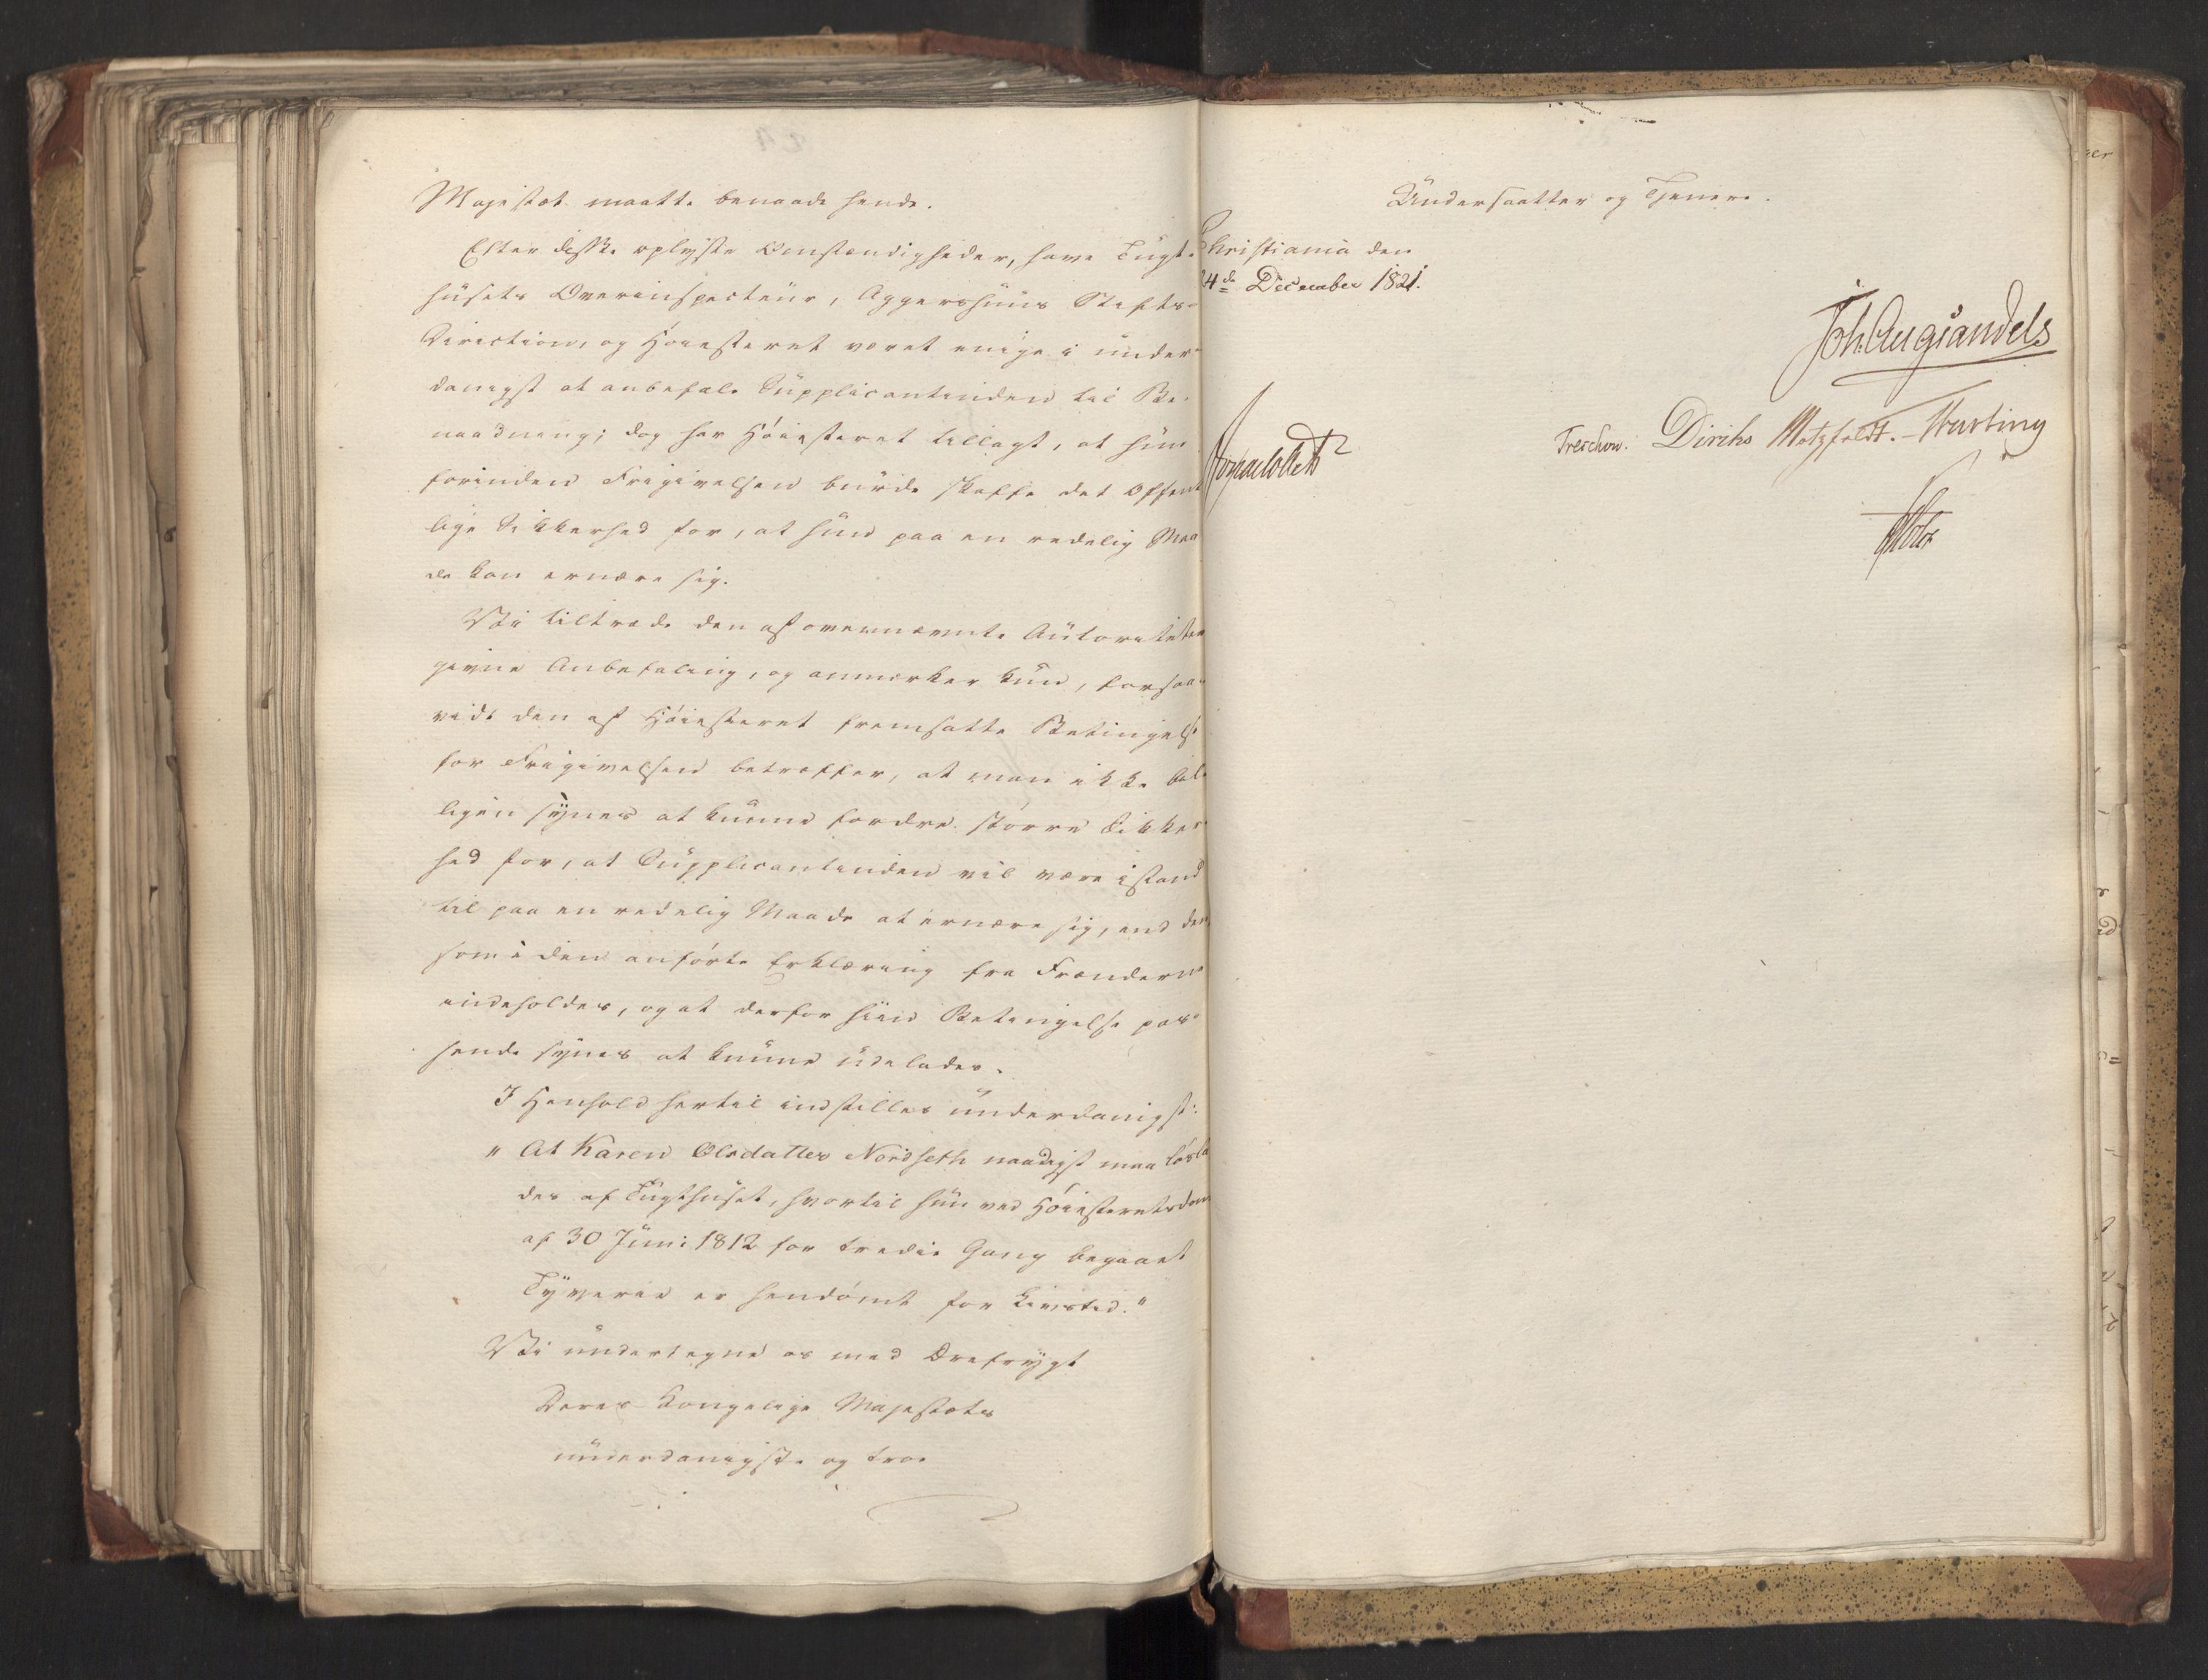 Majestæt maatte benaade hende.
Efter disse oplyste Omstændigheder, have Tugt-
husets Overinspecteur, Aggershuus Stifts-
Direction, og Høiesteret været enige i under-
danigst at anbefale Supplicantinden til Be-
naadning; dog har Høiesteret tillagt, at hun
forinden Frigivelsen burde skaffe det Offent
lige Sikkerhed for, at hun paa en redelig Maa
de kan ernære sig.
Vi tiltræde den af ovennævnte Autoriteter
givne Anbefaling, og anmærker kun, forsaa-
vidt den af Høiesteret fremsatte Betingelse
for Frigivelsen betræffer, at man ikke bil-
ligen synes at kunne fordre større Sikker-
hed for, at Supplicantinden vil være istand
til paa en redelig Maade at ernære sig, end den,
som i den anførte Erklæring fra Frænderne
indeholdes, og at derfor hiin Betingelse pas-
sende synes at kunne udelades.
I Henhold hertil indstilles underdanigst:
" At Karen Olsdatter Nordseth naadigst maa løsla
des af Tugthuset, hvortil hun ved Høiesteretsdom
af 30 Juni 1812 for tredie Gang begaaet
Tyverie er hendømt for Livstid."
Vi undertegne os med Ærefrygt
Deres Kongelige Majestæts
underdanigste og troe
Undersaatter og Tjenere.
Christiania den
4de December 1821.
Joh. Aug Sandels
Treschow. Diriks Motzfeldt.